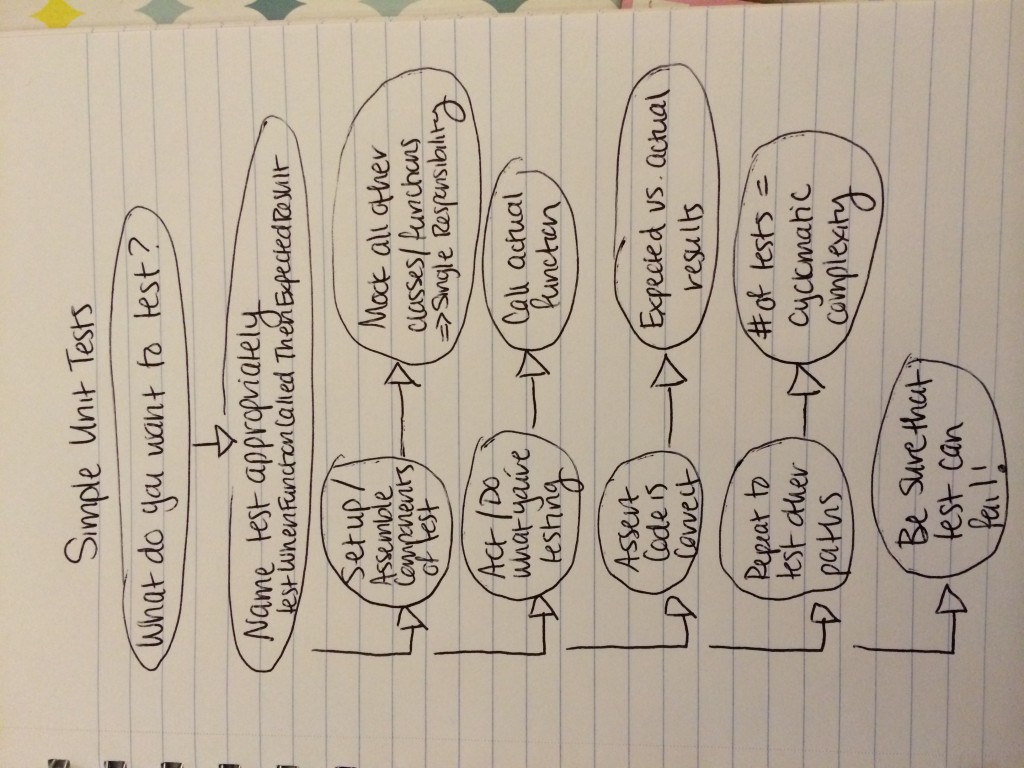 Simple Unit Tests
What do you want to test?
Name test appropriately
testWhenFunctionCalledThenExpectedResult
Setup/
Assemble
Components
of test
Mock all other
classes/functions
=> Single Responsibility
Act/Do
what you're
testing
Call actual
function
Assert
Code is
Correct
Expected vs. actual
results
Repeat to
test other
paths
# of tests =
cyclomatic
complexity
Be sure that
test can
fail!